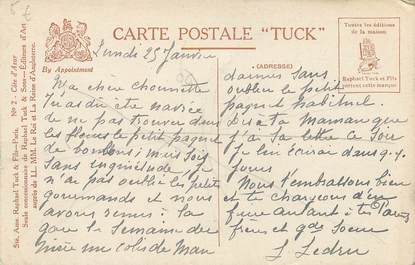 CARTE POSTALE "TUCK"
By Appointment
(ADRESSE)
Toutes les éditions
de la maison
Raphael Tuck et Fils
portent cette marque
Sté. Anme. Raphael Tuck & Fils—Paris
Série 2. Côte d'Azur
Seule concessionnaire de Raphael Tuck & Sons—Éditeurs d'Art
auprès de LL. MM. Le Roi et La Reine d'Angleterre.
Lundi 25 Janvier
Ma chere chounette
tu as du etre navrée
de ne pas trouver dans
les le petit paquet
de bonbons; mais sois
sans inquiétude je
n'ai pas oublié les petits
gourmands et nous
avons remis: la
gare la semaine der
niere un colis de Man
darines sans
oublier le petit
paquet habituel.
dis a ta Maman que
j'ai sa lettre ce Soir
Je lui écrirai dans q.q.
jours
Nous t'embrassons bien
et te chargeons d'en
faire autant à tes
freres et gde Soeur
L Ledru